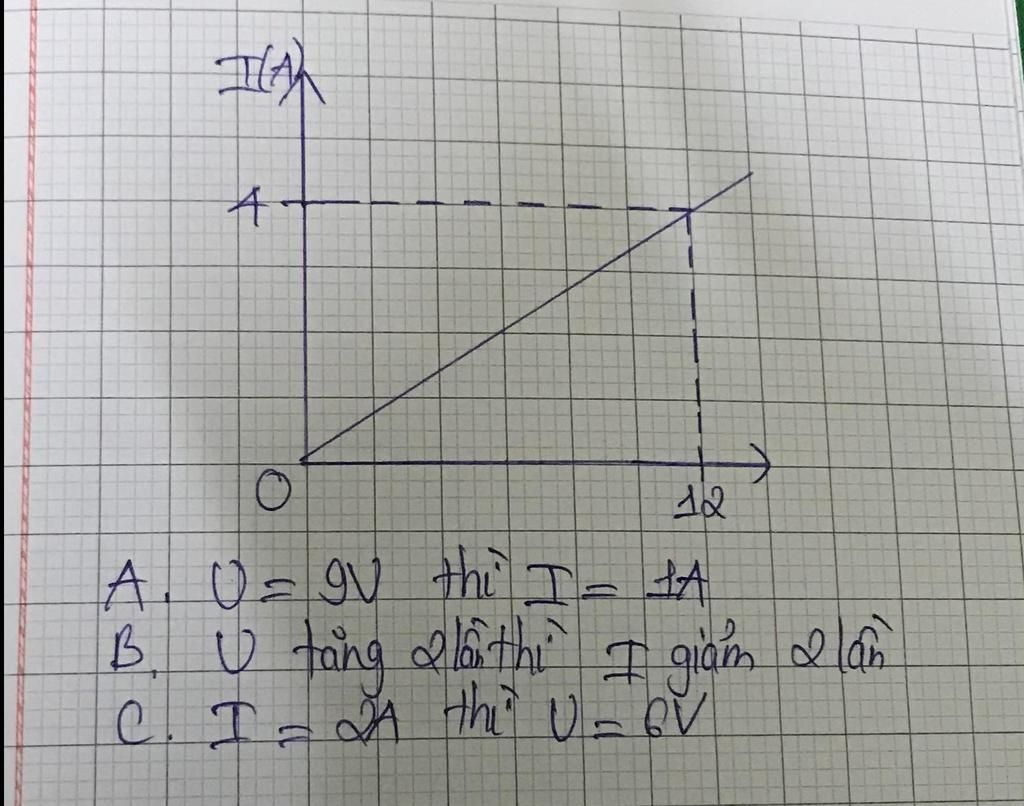 I(A)
4
O
12
A. U = 9V thì I = 1A
B. U tăng 2 lần thì I giảm 2 lần
C. I = 2A thì U = 6V